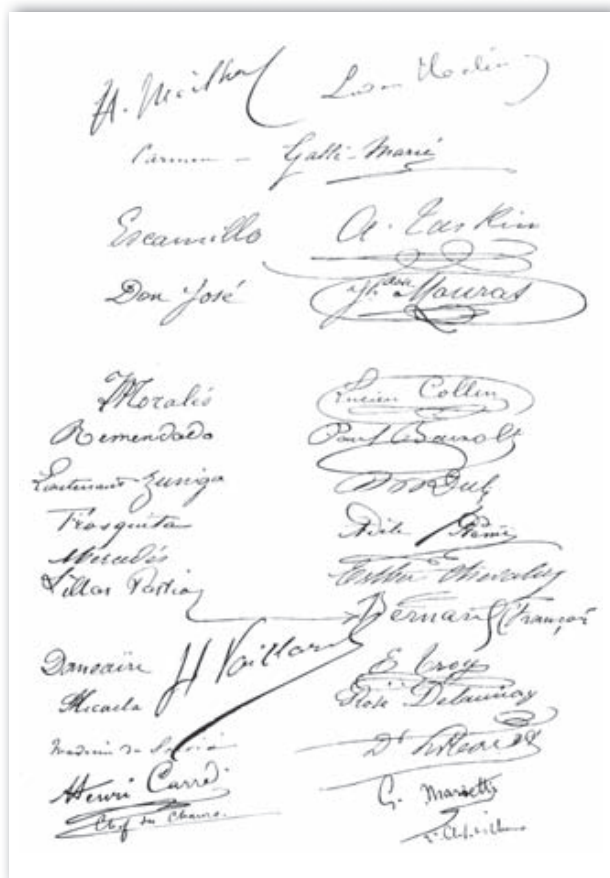 H. Meilhac
Carmen - Galli-Marié
Escamillo A. Taskin
Don José Mouras
Moralès Lucien Collin
Remendado Paul Barnolt
Lieutenant Zuniga
Frasquita
Mercédès Esther Chevalier
Lillas Pastia
Bernard François
Dancaïre H Vaillard E Troy
Micaela Rose Delaunay
Médecin de Service Dr
Henri Carré G. Marietti
Chef des Chœurs.